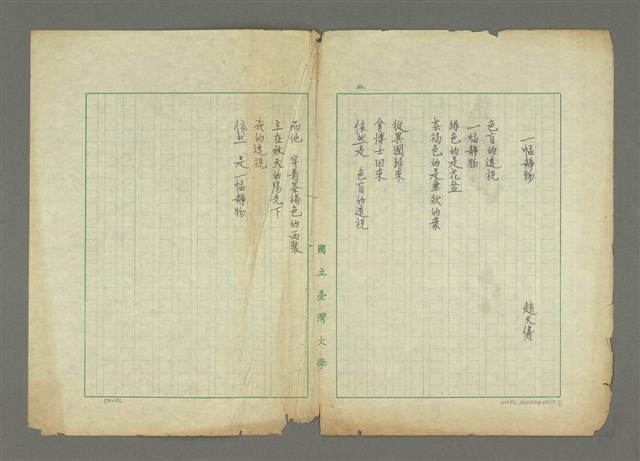 一幅靜物
趙天儀
色盲的透視
一幅靜物
綠色的是花盆
茶褐色的是傘狀的葉
從異國歸來
拿博士回來
依然是 色盲的透視
而他 穿着茶褐色的西裝
立在秋天的陽光下
我的透視
依然 是一幅靜物
國立臺灣大學
No.